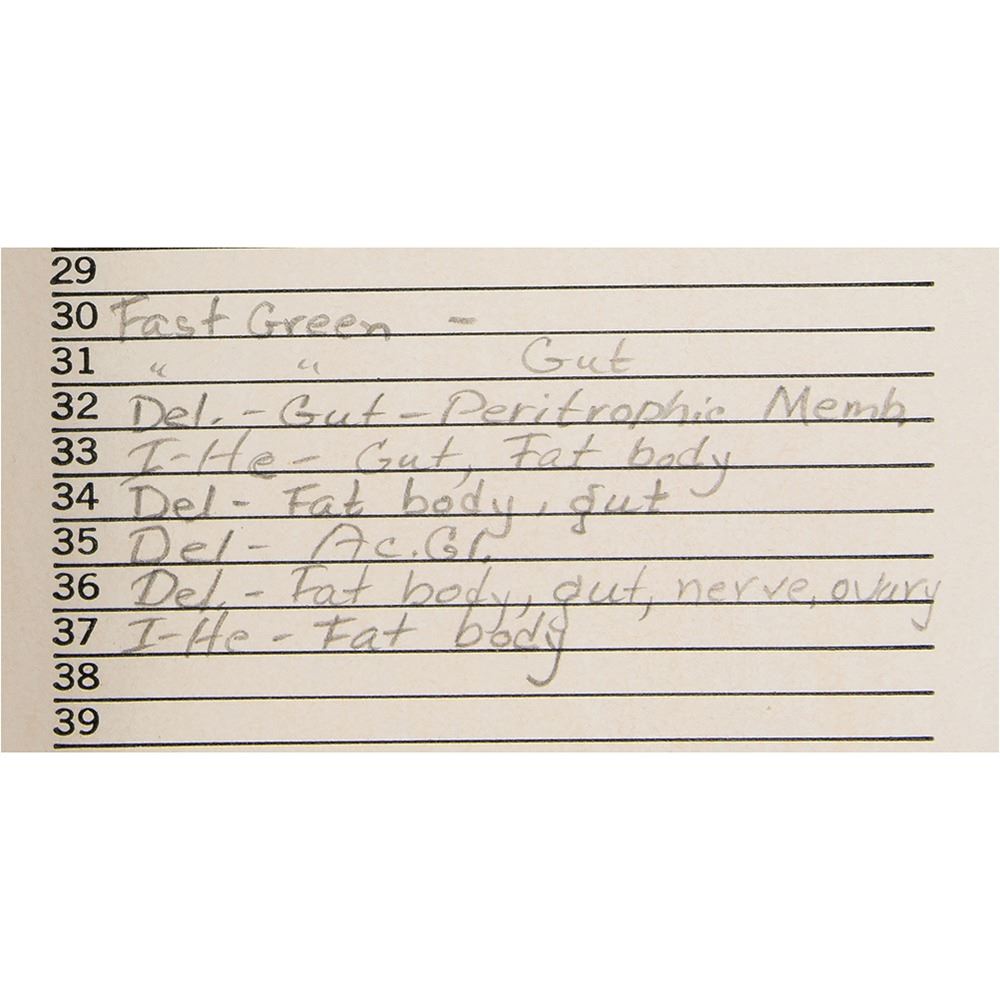 29
30 Fast Green -
31 " " Gut
32 Del. - Gut - Peritrophic Memb.
33 I-He - Gut, Fat body
34 Del - Fat body, gut
35 Del - Ac. Gl.
36 Del. - Fat body, gut, nerve, ovary
37 I-He - Fat body
38
39